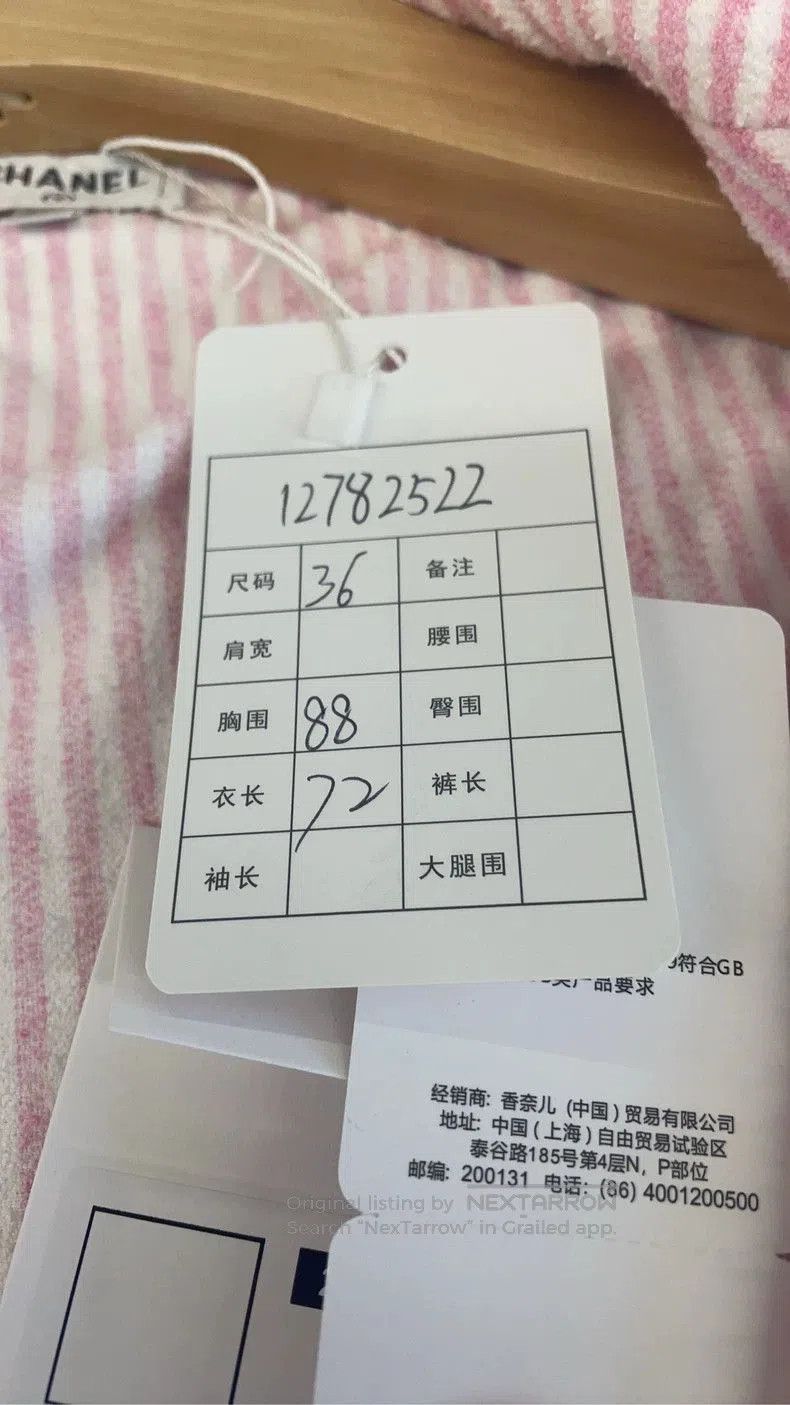 CHANEL
12782522
尺码 36 备注
肩宽 腰围
胸围 88 臀围
衣长 72 裤长
袖长 大腿围
符合GB
产品要求
经销商: 香奈儿 (中国) 贸易有限公司
地址: 中国 (上海) 自由贸易试验区
泰谷路185号第4层N, P部位
邮编: 200131 电话: (86) 4001200500
Original listing by NEXTARROW
Search "NexTarrow" in Grailed app.